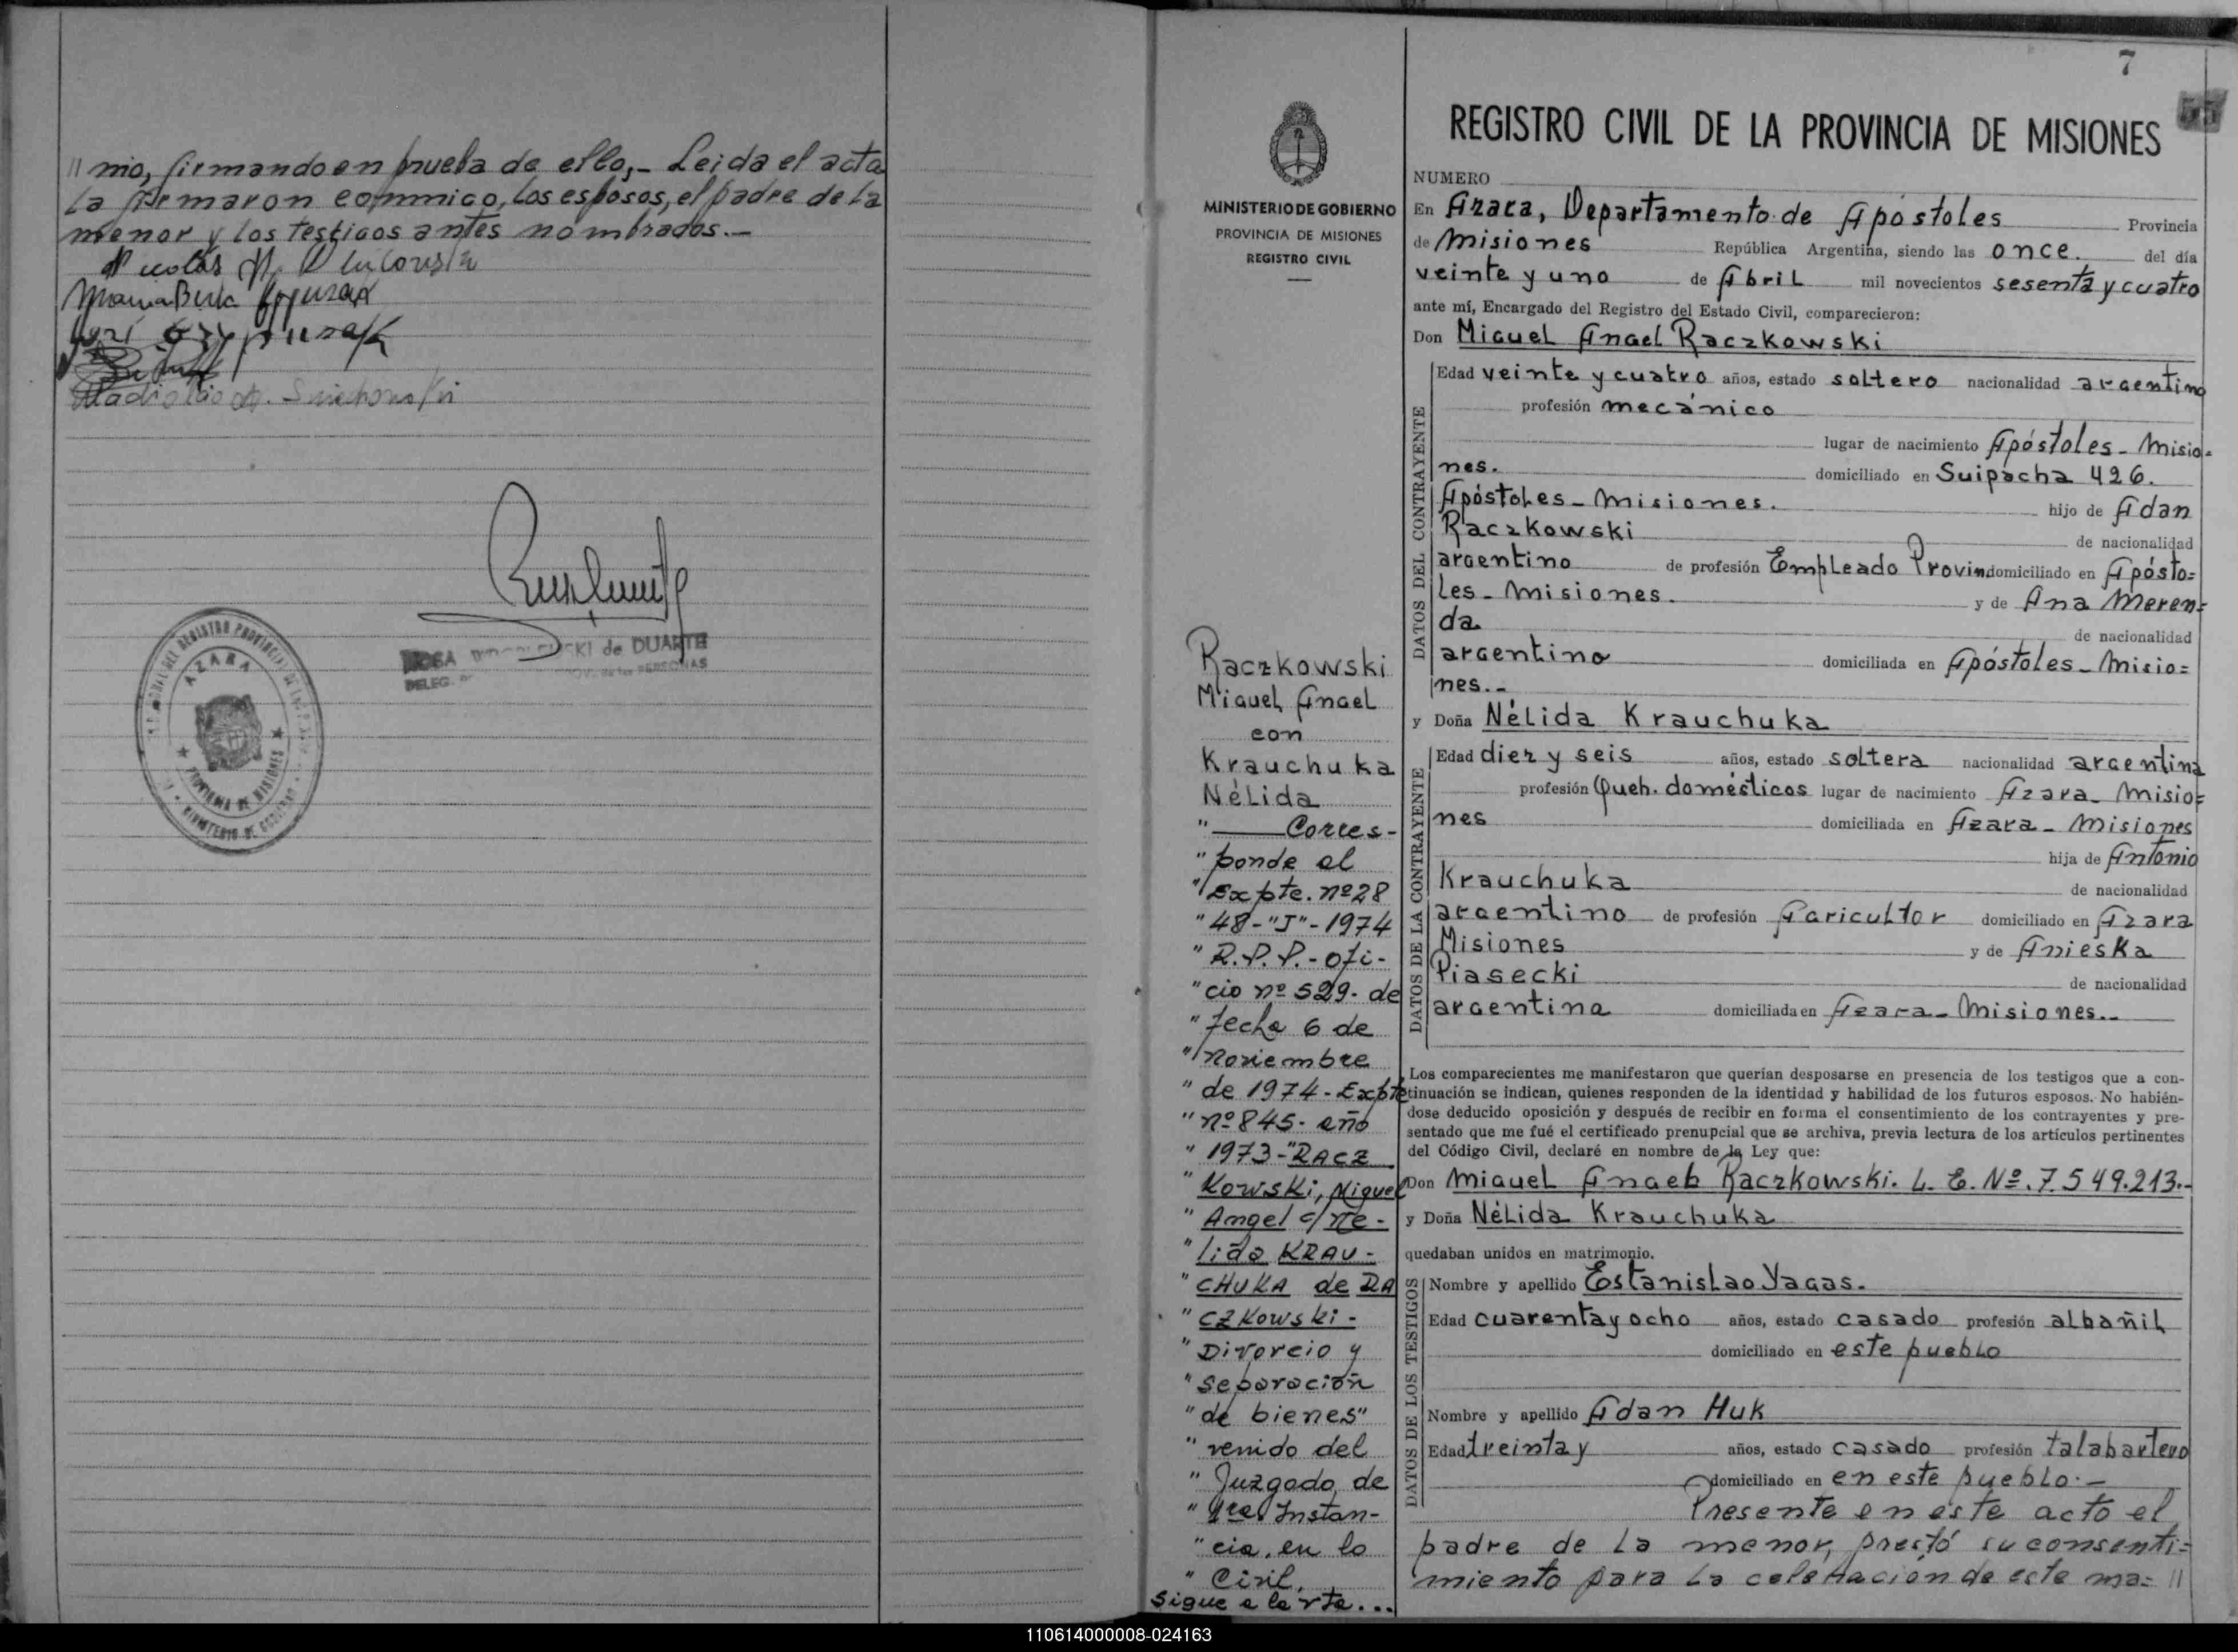 // nio, firmando en prueba de ello,- Leida el acta
la firmaron conmigo, los esposos, el padre de la
menor y los testigos antes nombrados.-
de DUARTE
DELEG.
PERSONAS
AZARA
PROVINCIA DE MISIONES
7
55
MINISTERIO DE GOBIERNO
PROVINCIA DE MISIONES
REGISTRO CIVIL
Raczkowski
Miguel Angel
con
Krauchuka
Nélida
" Corres-
" ponde al
" Expte. nº 28
" 48-"J"-1974
" R.P.P.- ofi-
" cio nº 529- de
" fecha 6 de
" noviembre
" de 1974 - Expte
" nº 845- año
" 1973-"RACZ
" Kowski, Miguel
" Angel c/ Né-
" lida KRAU-
" CHUKA de RA
" CZKowski-
" Divorcio y
" separación
" de bienes"
" venido del
" Juzgado de
" 1ra. Instan-
" cia, en lo
" Civil,
Sigue a la vta...
REGISTRO CIVIL DE LA PROVINCIA DE MISIONES
NUMERO
En Azara, Departamento de Apóstoles Provincia
de Misiones República Argentina, siendo las once. del día
veinte y uno de Abril mil novecientos sesenta y cuatro
ante mí, Encargado del Registro del Estado Civil, comparecieron:
Don Miguel Angel Raczkowski
DATOS DEL CONTRAYENTE
Edad veinte y cuatro años, estado soltero nacionalidad argentino
profesión mecánico
lugar de nacimiento Apóstoles - Misio=
nes. domiciliado en Suipacha 426.
Apóstoles - Misiones. hijo de Adan
Raczkowski de nacionalidad
argentino de profesión Empleado Provin domiciliado en Apósto=
les - Misiones. y de Ana Meren=
da. de nacionalidad
argentina domiciliada en Apóstoles - Misio=
nes.-
y Doña Nélida Krauchuka
DATOS DE LA CONTRAYENTE
Edad diez y seis años, estado soltera nacionalidad argentina
profesión Queh. domésticos lugar de nacimiento Azara - Misio=
nes domiciliada en Azara - Misiones
hija de Antonio
Krauchuka de nacionalidad
argentino de profesión Agricultor domiciliado en Azara
Misiones y de Anieska
Piasecki de nacionalidad
argentina domiciliada en Azara - Misiones.-
Los comparecientes me manifestaron que querían desposarse en presencia de los testigos que a con-
tinuación se indican, quienes responden de la identidad y habilidad de los futuros esposos. No habién-
dose deducido oposición y después de recibir en forma el consentimiento de los contrayentes y pre-
sentado que me fué el certificado prenupcial que se archiva, previa lectura de los artículos pertinentes
del Código Civil, declaré en nombre de la Ley que:
Don Miguel Angel Raczkowski. L. E. Nº. 7.549.213.-
y Doña Nélida Krauchuka
quedaban unidos en matrimonio.
DATOS DE LOS TESTIGOS
Nombre y apellido Estanislao Yagas.
Edad cuarenta y ocho años, estado casado profesión albañil
domiciliado en este pueblo
Nombre y apellido Adan Huk
Edad treinta y años, estado casado profesión talabartero
domiciliado en en este pueblo.-
Presente en este acto el
padre de la menor, prestó su consenti=
miento para la celebración de este ma= //
110614000008-024163